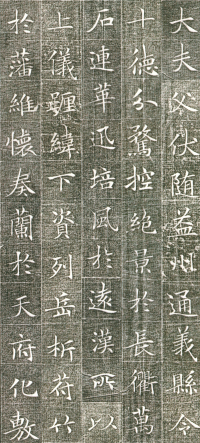 大夫父伏随益州通義縣令
十德分騖控絶景於長衢萬
石連華迅培風於遠漢所以
上儀躔緯下資列岳析符竹
於藩維懷奏蘭於天府化敷